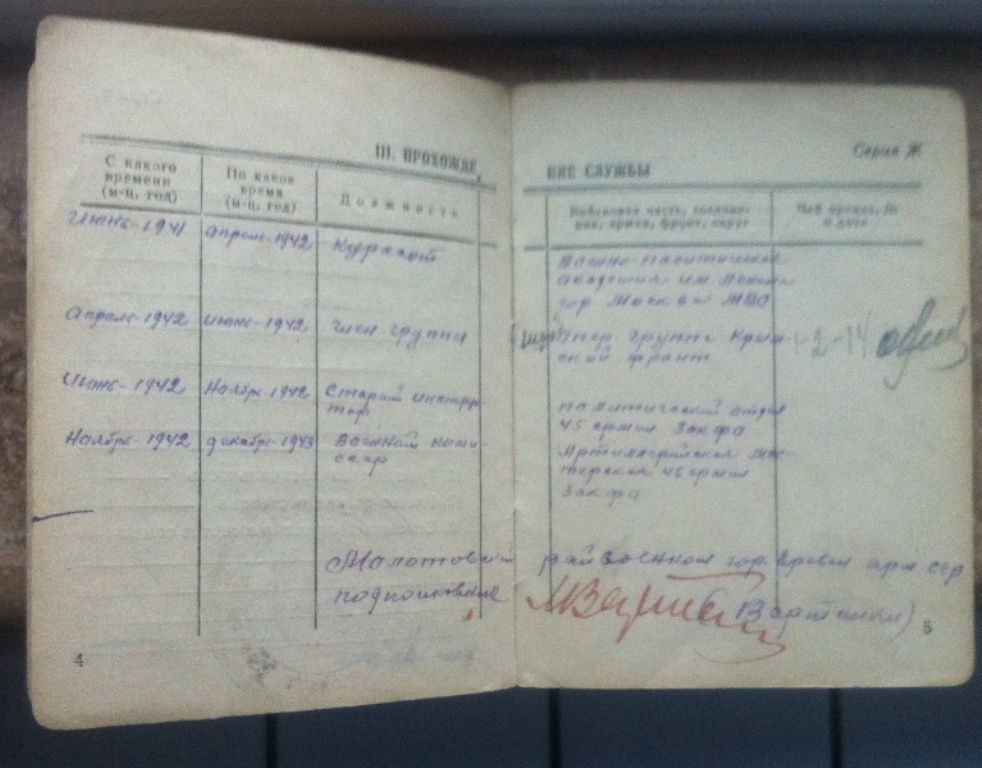 III. ПРОХОЖДЕ
С какого
времени
(м-ц, год)
По какое
время
(м-ц, год)
Должность
Июнь-1941
апрель-1942
Курсант
Апрель-1942
июнь-1942
член группы
Июнь-1942
Ноябрь-1942
Старший инструк
тор
Ноябрь 1942
декабрь-1943
Военный коми-
ссар
Молотовский
подполковник
4
Серия Ж
НИЕ СЛУЖБЫ
Войсковая часть, соедине-
ние, армия, фронт, округ
Чей приказ, №
и дата
Военно-политическая
академия им Ленина
гор Москва
Опер группа Крым-
ский фронт
политический отдел
45 армии Закфр
Артиллерийская мас-
терская 45 армии
Закфр
райвоенком гор. Ереван арм сср
(Вартанян)
5